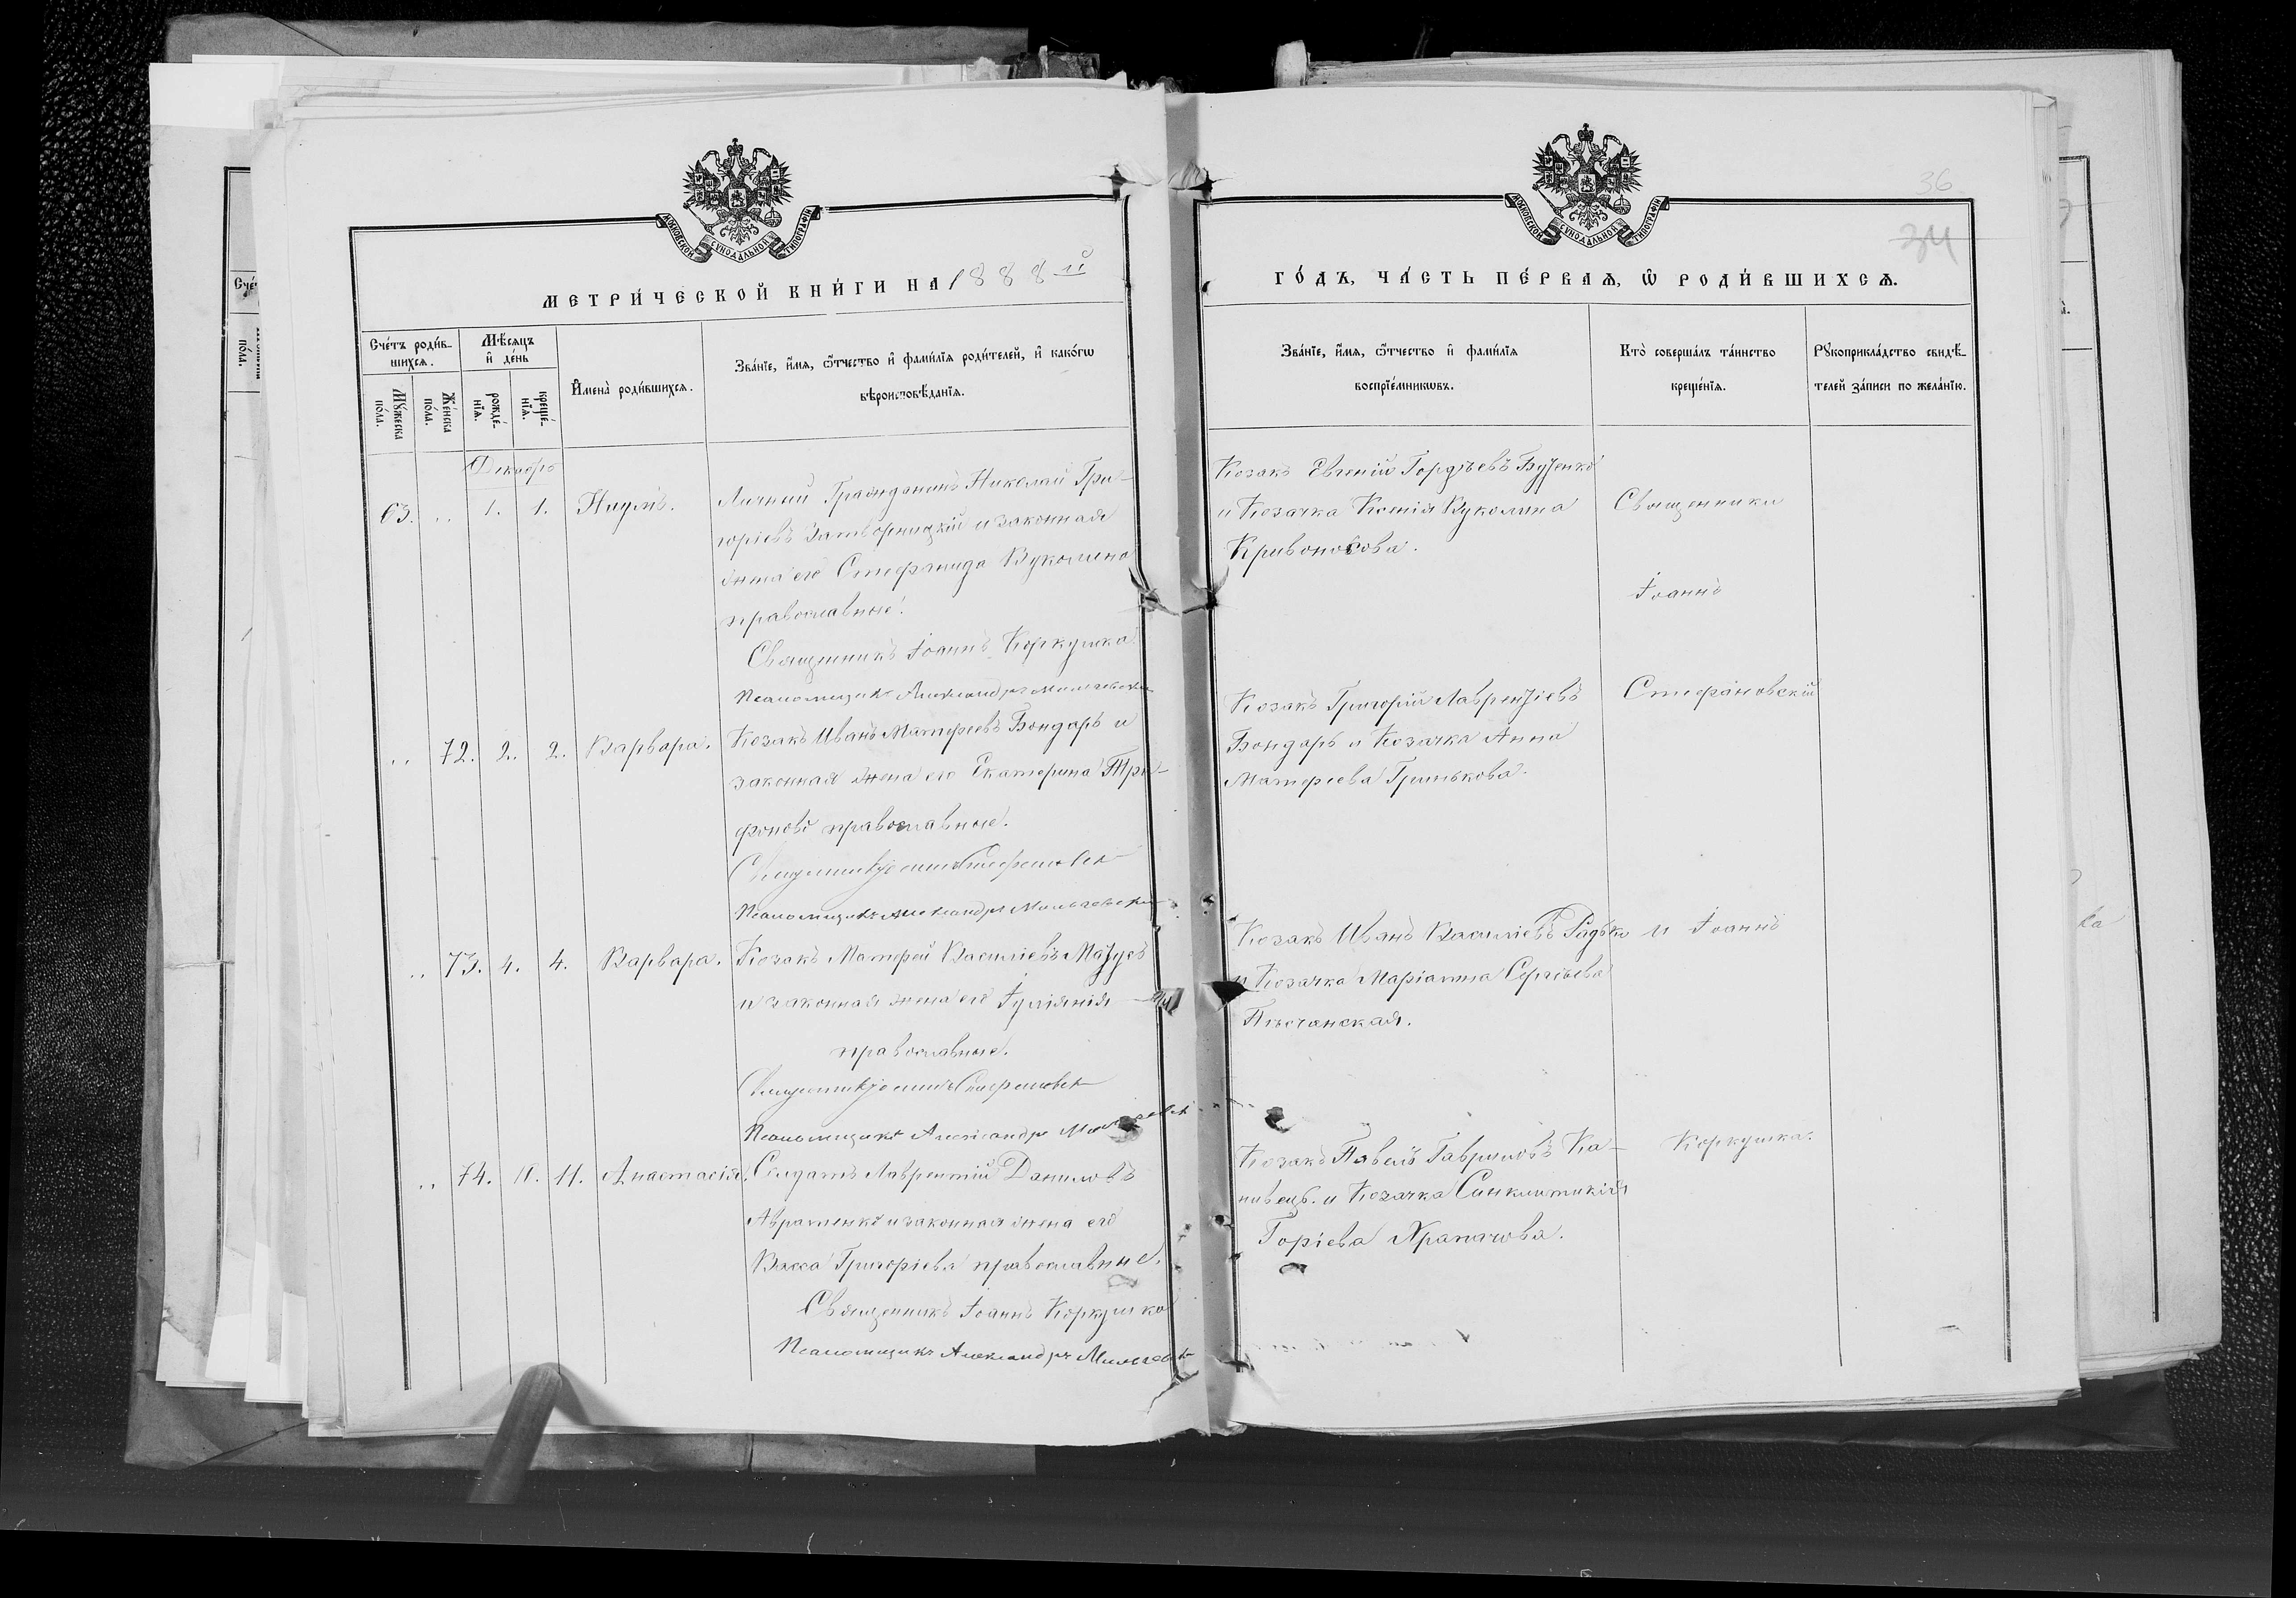 МОСКОВСКОЙ СУНОДАЛЬНОЙ ТИПОГРАФІИ
МЕТРИ́ЧЕСКОЙ КНИ́ГИ НА 1888 й
Сче́тъ роди́в-
шихся.
Мѣ́сяцъ
и҆ де́нь
Мꙋ́жеска
по́ла.
Же́нска
по́ла.
рожде́-
нїѧ.
креще́-
нїѧ.
И҆мена̀ роди́вшихсѧ.
Зва́нїе, и҆́мѧ, ѻ҆́тчество и҆ фами́лїѧ роди́телей, и҆ како́гѡ
вѣроисповѣ́данїѧ.
Декабрь
63. „ 1. 1. Наумъ.
Личный Гражданинъ Николай Гри-
горіевъ Затворницкій и законная
жена его Стефанида Вуколина
православные.
Священникъ Іоаннъ Коркушка
Псаломщикъ Александръ
„ 72. 2. 2. Варвара.
Козакъ Иванъ Матфеевъ Бондарь и
законная жена его Екатерина Три-
фонова православные.
Священникъ Іоаннъ Стефановск
Псаломщикъ Александръ
„ 73. 4. 4. Варвара.
Козакъ Матфей Василіевъ Мазусъ
и законная жена его Іуліянія
православные.
Священникъ Іоаннъ Стефановск
Псаломщикъ Александръ
„ 74. 11. 11. Анастасія.
Солдатъ Лаврентій Даниловъ
Авраменко и законная жена его
Васса Григоріева православные.
Священникъ Іоаннъ Коркушка
Псаломщикъ Александръ
МОСКОВСКОЙ СУНОДАЛЬНОЙ ТИПОГРАФІИ
36
34
ГО́ДЪ, ЧА́СТЬ ПЕ́РВАѦ, Ѡ҆ РОДИ́ВШИХСѦ.
Зва́нїе, и҆́мѧ, ѻ҆́тчество и҆ фами́лїѧ
воспрїе́мникѡвъ.
Кто̀ соверша́лъ та́инство
креще́нїѧ.
Рꙋкоприкла́дство свидѣ́-
телей за́писи по жела́нїю.
Козакъ Евгеній Гордѣевъ Буценко
и Козачка Ксенія Вуколина
Кривоносова.
Священники
Іоаннъ
Стефановскій
Козакъ Григорій Лаврентіевъ
Бондарь и Козачка Анна
Матфеева Гринькова.
Козакъ Иванъ Василіевъ Радько
и Козачка Маріамна Сергѣева
Пѣсчанская.
и Іоаннъ
Коркушка.
Козакъ Павелъ Гавриловъ Ка-
нивецъ. и Козачка Синклитикія
Горіева Храпачова.